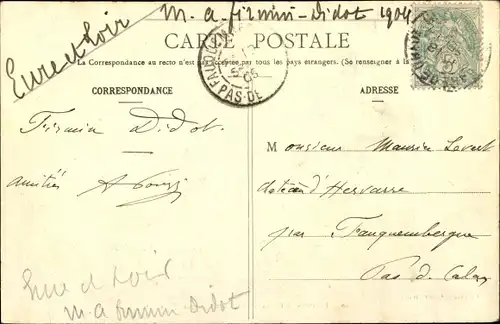 Eure et Loir
M. a. firmin-Didot 1904
CARTE POSTALE
La Correspondance au recto n'est pas acceptée par tous les pays étrangers. (Se renseigner à la
CORRESPONDANCE
ADRESSE
PAS-DE
Firmin Didot.
amitiés
Monsieur Maurice Levert
d'Hervarre
par Fauquembergue
Pas d. Calais
Eure et Loir
M. a firmin Didot